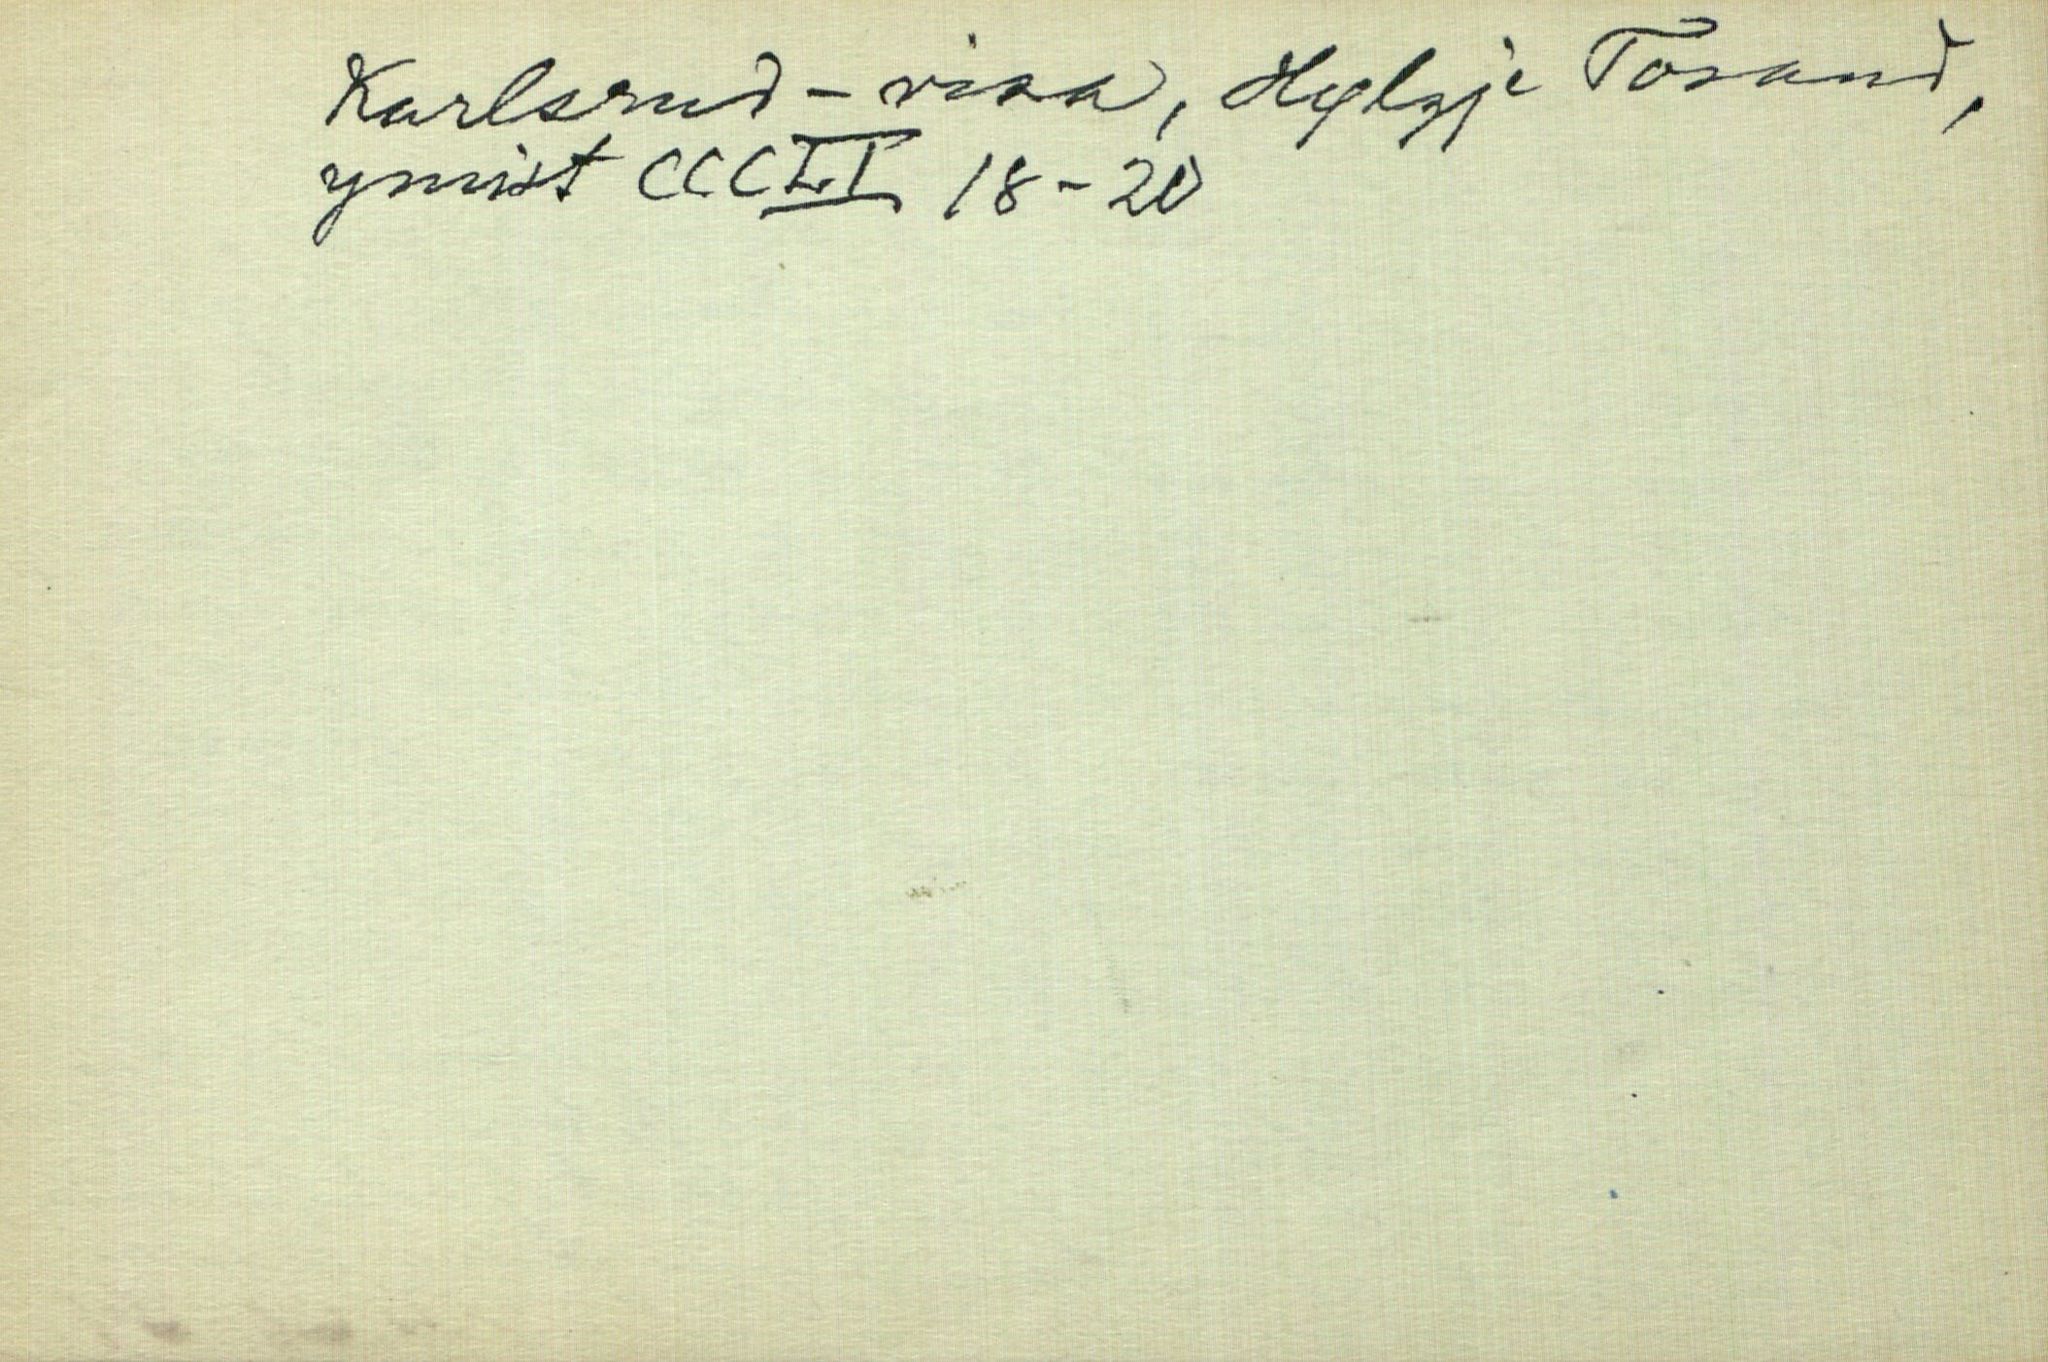 Karlsrud-visa, Hylgje Tosand,
ymist CCCLI 18-20